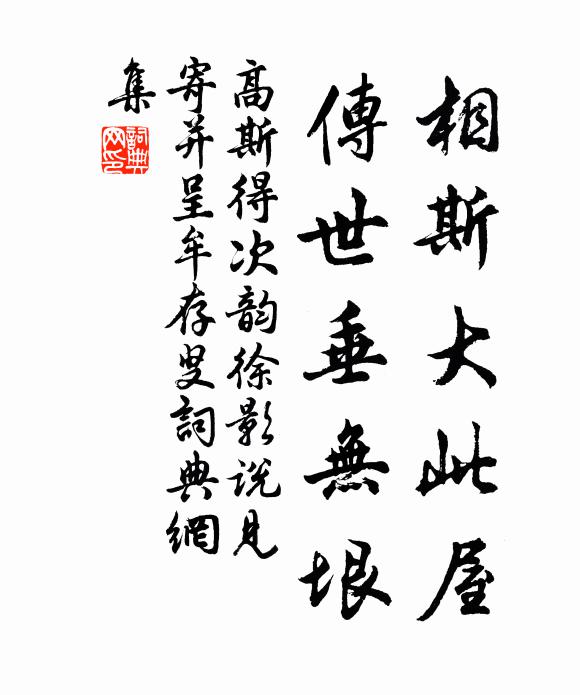 相斯大此屋
傳世垂無垠
高斯得次韵徐影説見
寄并呈牟存叟詞典網
集
詞典网印